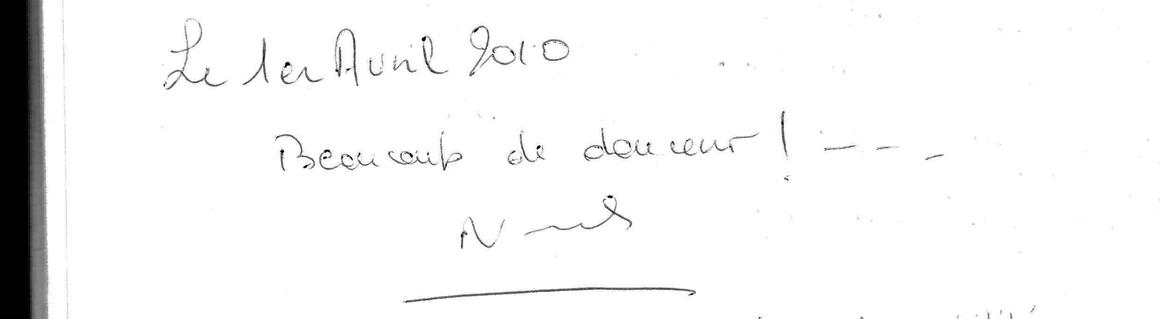 Le 1er Avril 2010
Beaucoup de douceur ! - - -